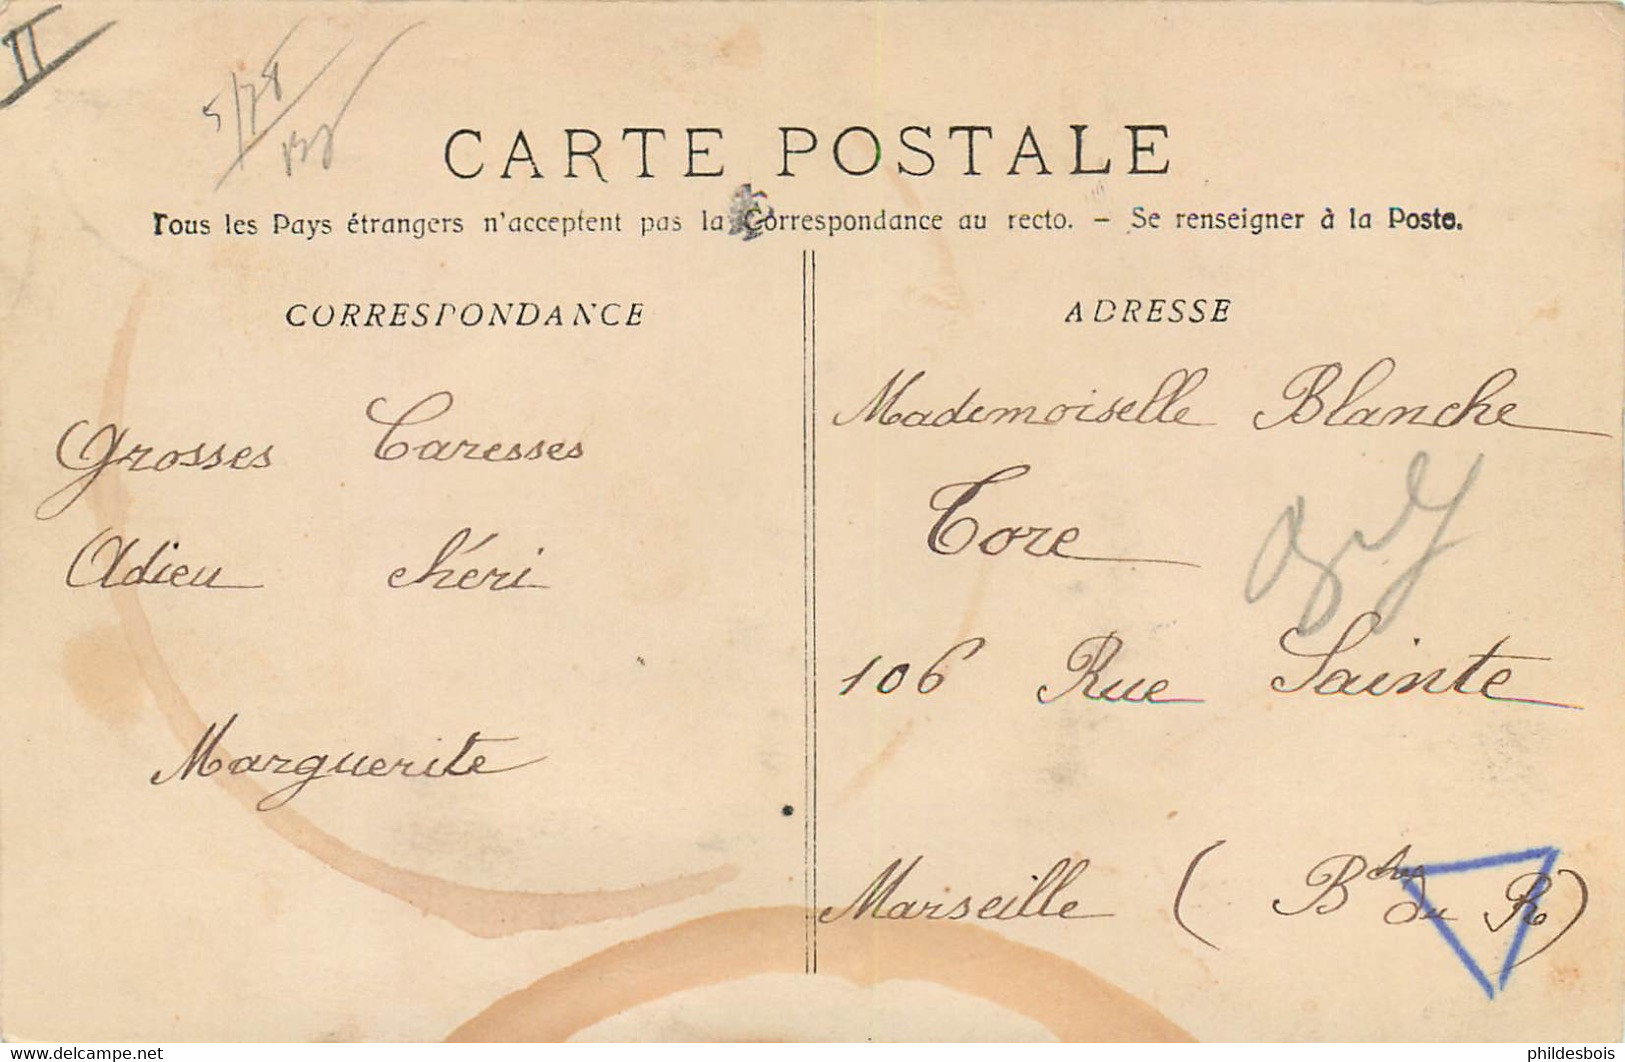 II
5/78
CARTE POSTALE
Tous les Pays étrangers n'acceptent pas la Correspondance au recto. — Se renseigner à la Poste.
CORRESPONDANCE
Grosses Caresses
Adieu chéri
Marguerite
ADRESSE
Mademoiselle Blanche
Tore
106 Rue Sainte
Marseille ( Bches du R)
delcampe.net
phildesbois